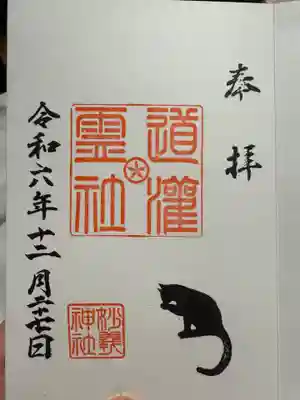 奉拝
道灌
霊社
令和六年十二月二十七日
妙義
神社